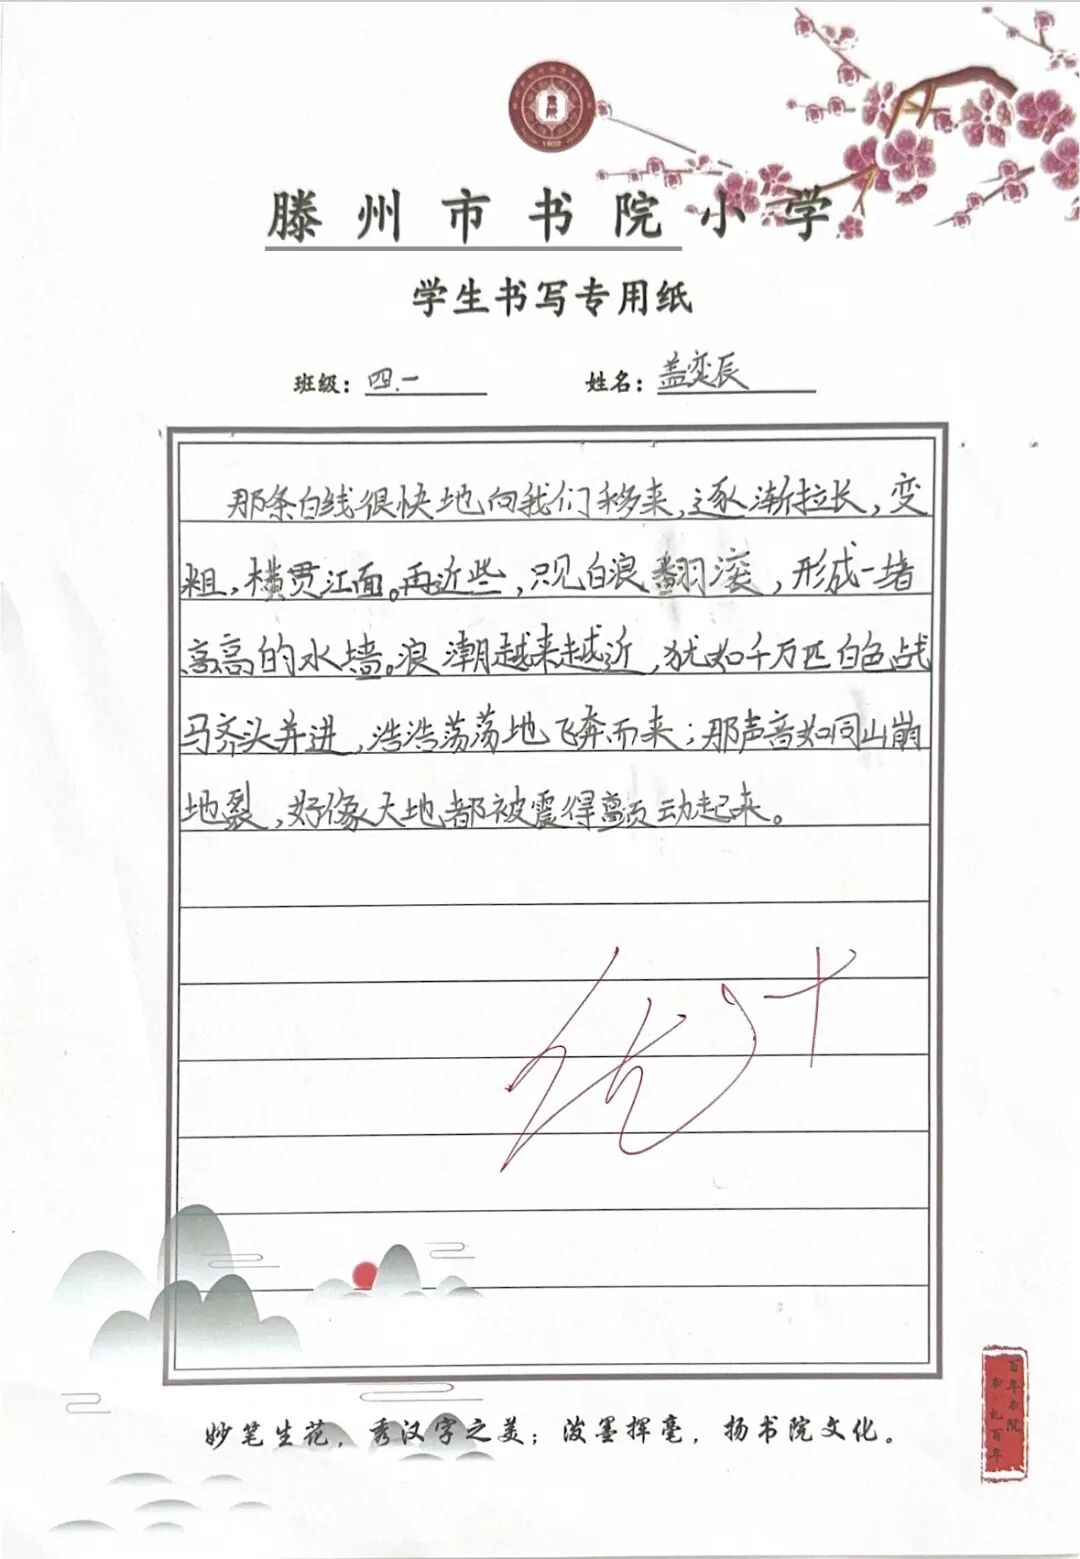 滕州市书院小学
学生书写专用纸
班级：四.一 姓名：盖奕辰
那条白线很快地向我们移来，逐渐拉长，变
粗，横贯江面。再近些，只见白浪翻滚，形成一堵
高高的水墙。浪潮越来越近，犹如千万匹白色战
马齐头并进，浩浩荡荡地飞奔而来；那声音如同山崩
地裂，好像大地都被震得颤动起来。
优+
妙笔生花，秀汉字之美；泼墨挥毫，扬书院文化。
百年书院
礼百年